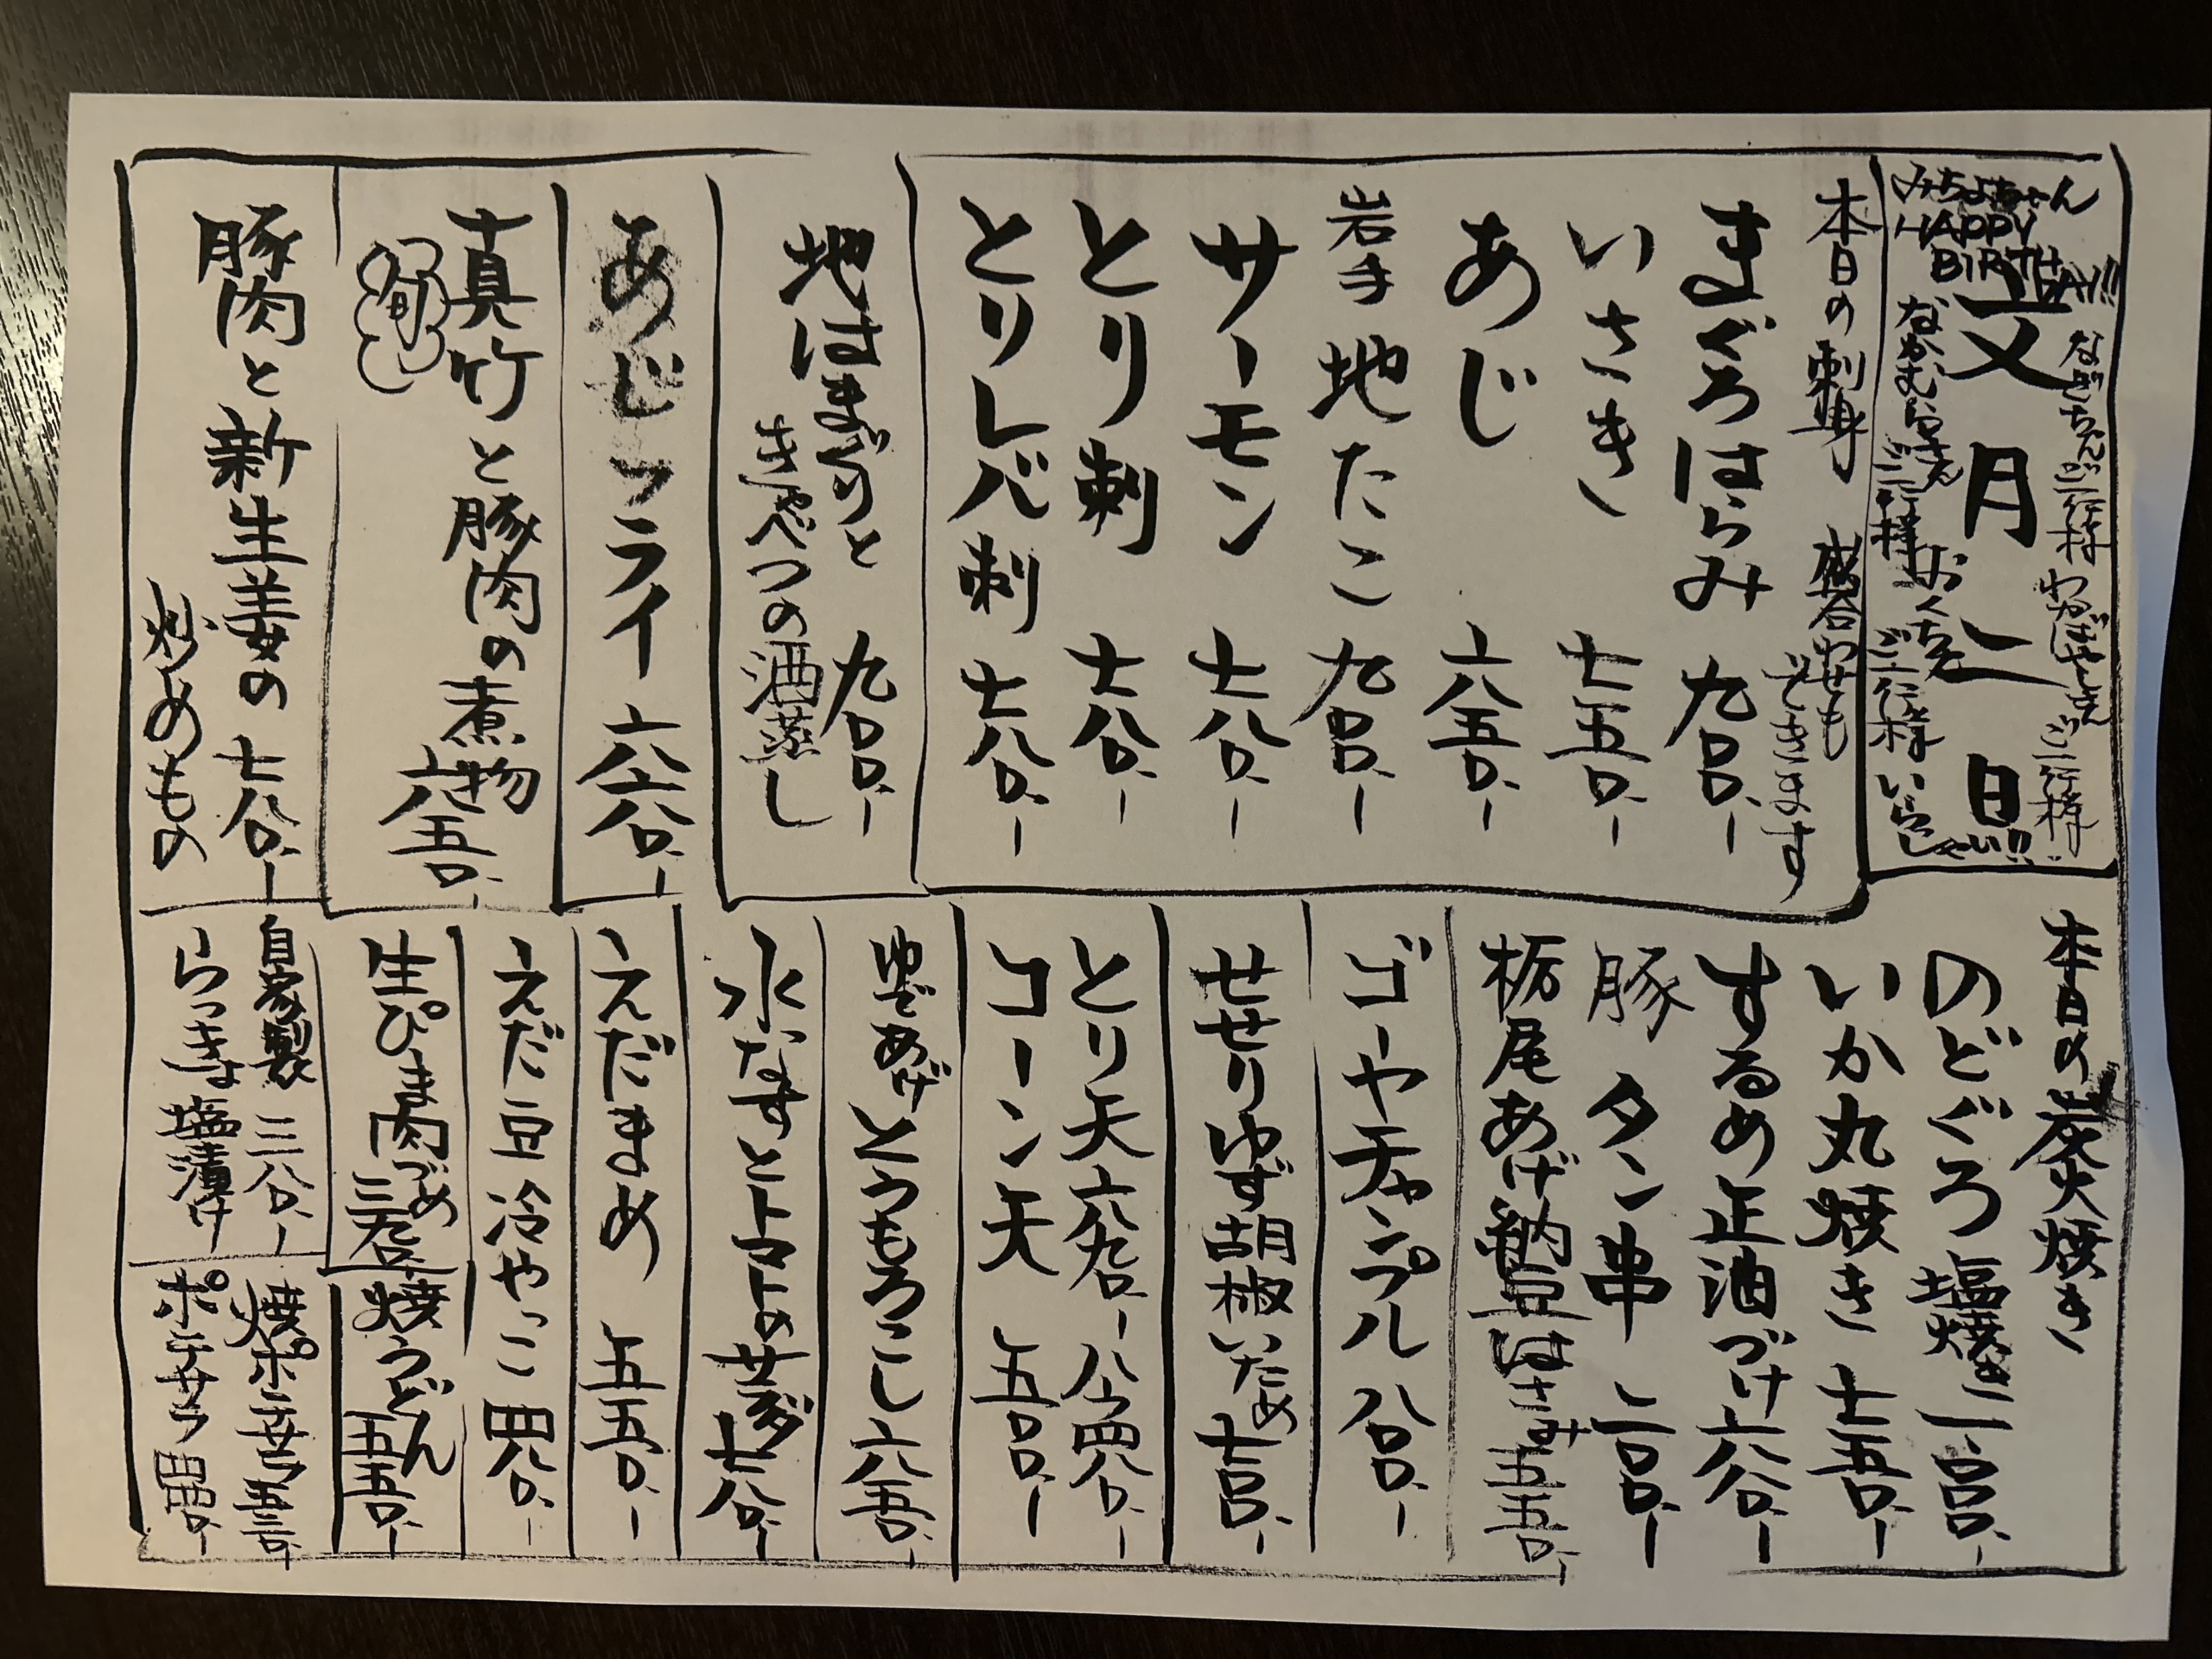 文月二日
みちよちゃん
HAPPY
BIRTHDAY!!
なぎちゃんご一行様
わかばやしさんご一行様
なかむらさんご一行様
おくちさんご一行様
いらっしゃい!!
本日の刺身 盛合わせも
できます
まぐろはらみ 九〇〇、ー
いさき 七五〇、ー
あじ 六五〇、ー
岩手地たこ 九〇〇、ー
サーモン 七八〇、ー
とり刺 七八〇、ー
とりレバ刺 七八〇、ー
地はまぐりと 九〇〇、ー
きゃべつの酒蒸し
あじフライ 六八〇、ー
真竹と豚肉の煮物
旬
六五〇、ー
豚肉と新生姜の 七八〇、ー
炒めもの
本日の炭火焼き
のどぐろ塩焼き 一、〇〇〇、ー
いか丸焼き 七五〇、ー
するめ正油づけ 六八〇、ー
豚タン串 二〇〇、ー
栃尾あげ納豆はさみ 五五〇、ー
ゴーヤチャンプル 八〇〇、ー
せせりゆず胡椒いため 七〇〇、ー
とり天
コーン天 五〇〇、ー
ゆであげとうもろこし 六五〇、ー
水なすとトマトのサラダ 七八〇、ー
えだまめ 五五〇、ー
えだ豆冷やっこ 四八〇、ー
生ぴーま肉づめ
焼うどん 五五〇、ー
自家製 三八〇、ー
らっきょ塩漬け
焼ポテサラ 五三〇、ー
ポテサラ